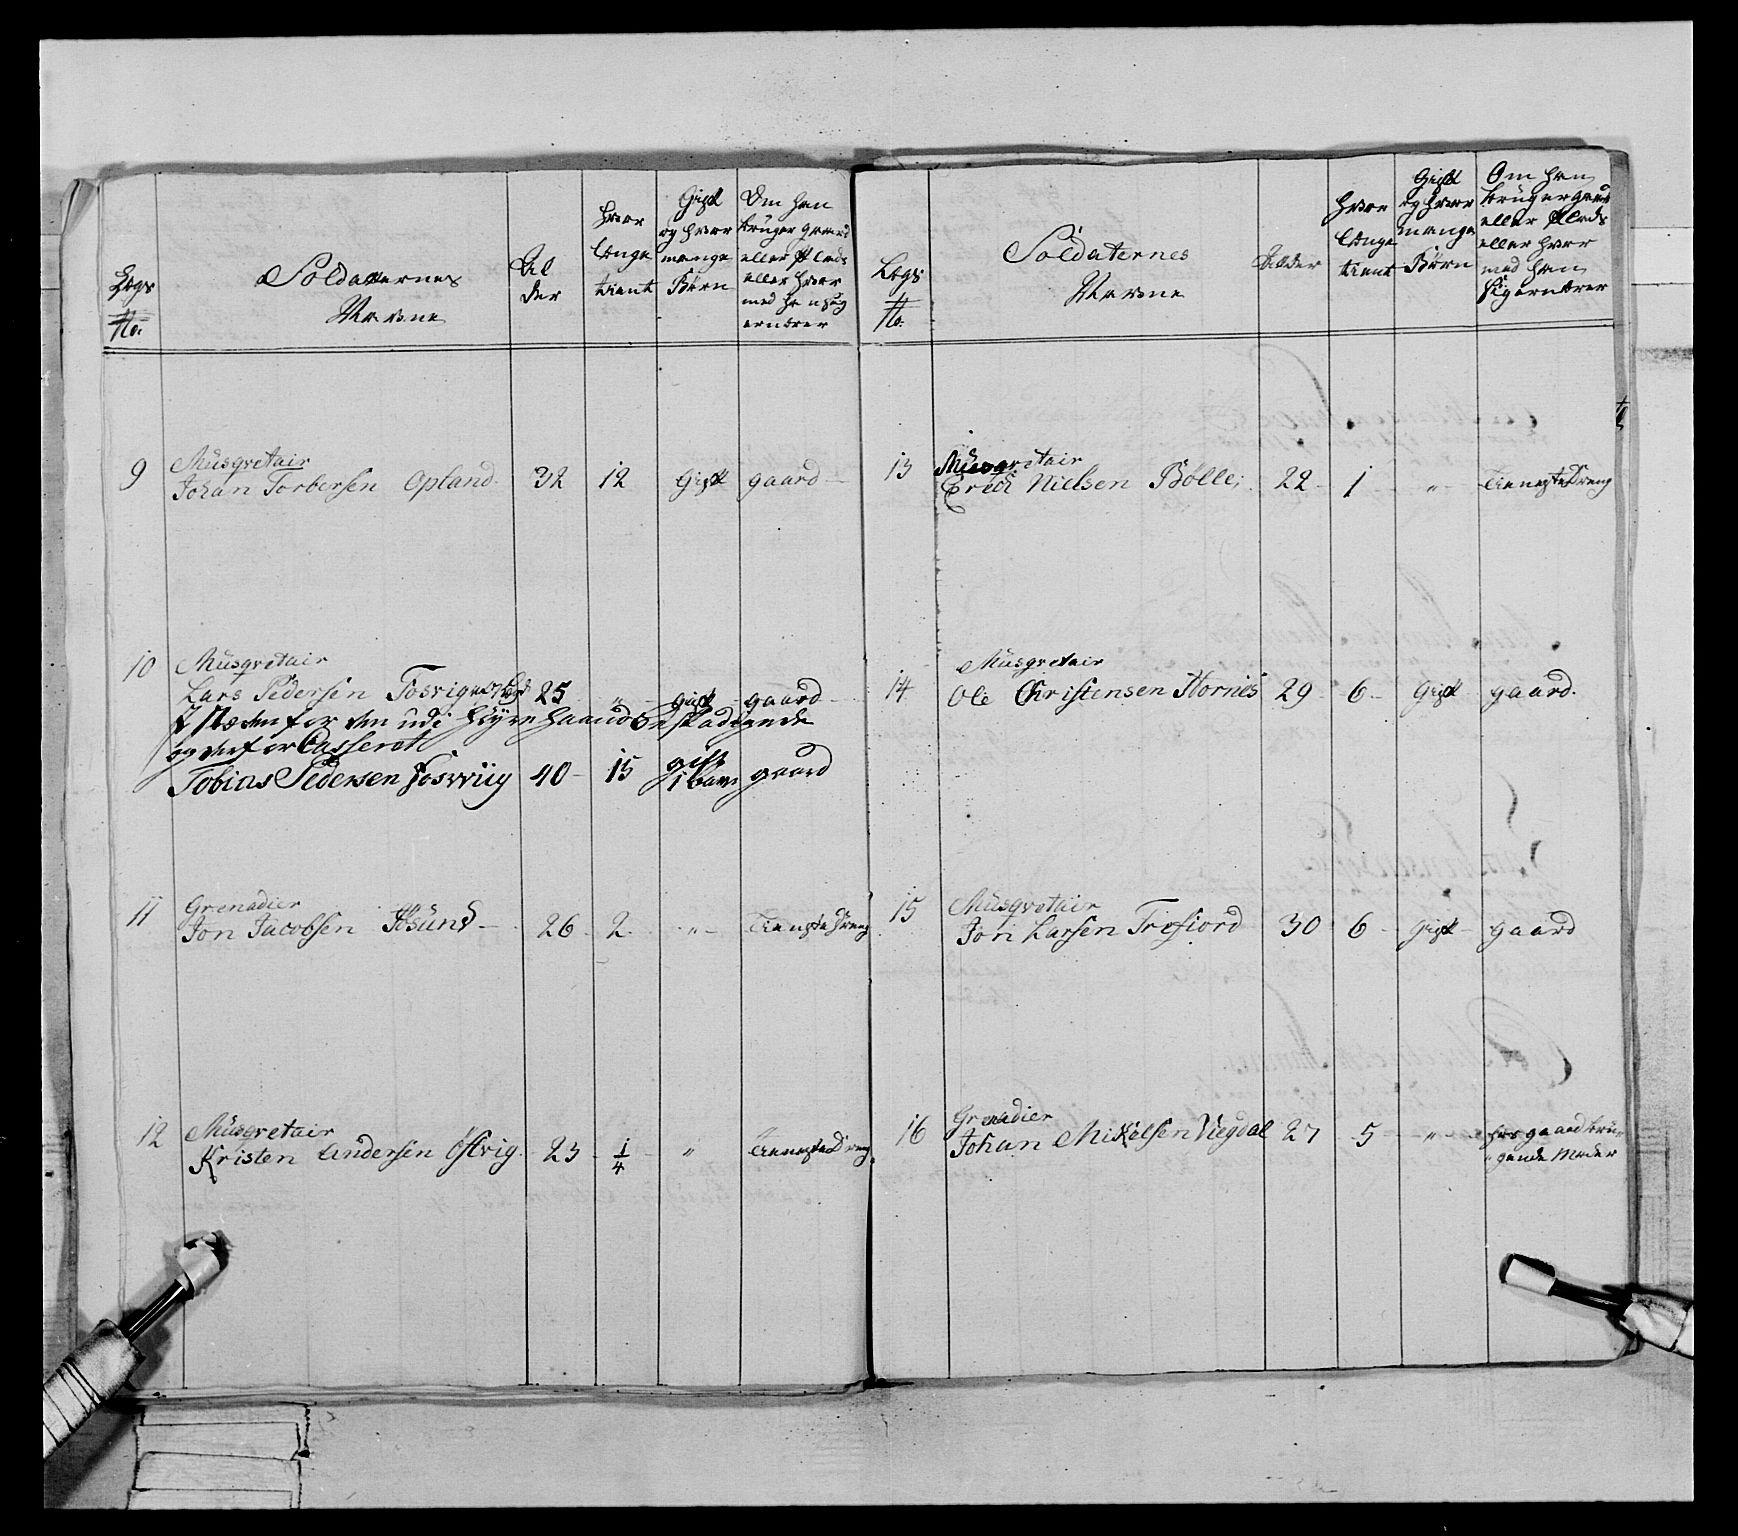 Legs
No.
Soldaternes
Navne
Al
der
hvor
længe
tient
Gift
og hvor
mange
Børn
Om han
bruger gaard
eller Plads
eller hvor
med han sig
ernærer
9
Musqvetair
Johan Torbersen Opland
32
12
Gift
gaard
10
Musqvetair
Lars Pedersen Fosvig
25
"
gift
gaard
I Stæden for den udi høyre haand beskadigende
og derfor Casserte
Tobias Pedersen Fosvviig
40
15
gift
1 barn
gaard
11
Grenadier
Jon Jacobsen Aasund
26
2
"
Tieneste Dreng
12
Musqvetair
Kristen Andersen Østvig
23
1/4
"
Tieneste Dreng
Legs
No.
Soldaternes
Navne
Alder
hvor
længe
tient
Gift
og hvor
mange
Børn
Om han
bruger gaard
eller Plads
eller hvor
med han
sig ernærer
13
Musqvetair
Erich Nielsen Bølle
22
1
"
Tieneste Dreng
14
Musqvetair
Ole Christensen Hornes
29
6
Gift
gaard.
15
Musqvetair
Jon Larsen Trefiord
30
6
Gift
gaard
16
Grenadier
Johan Mikkelsen Vegdal
27
5
"
hos gaardbru-
gende Moder